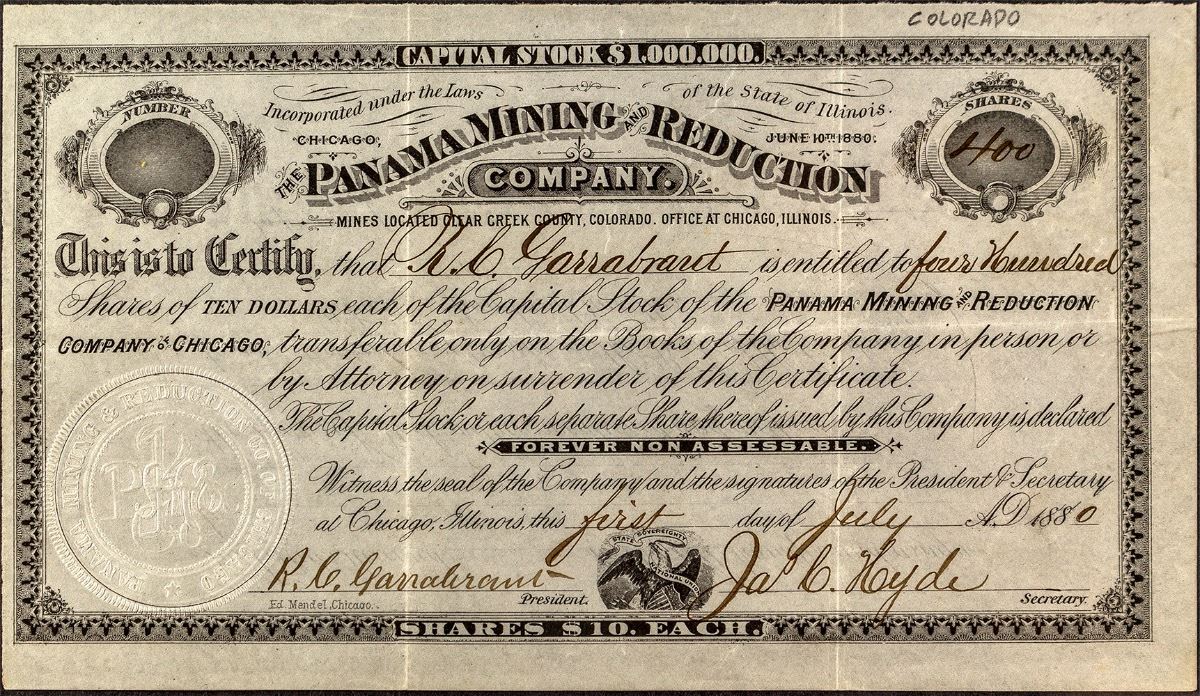 COLORADO
CAPITAL STOCK $1,000,000.
NUMBER
Incorporated under the Laws of the State of Illinois.
SHARES
400
CHICAGO, JUNE 10TH 1880.
THE PANAMA MINING AND REDUCTION
COMPANY.
MINES LOCATED CLEAR CREEK COUNTY, COLORADO. OFFICE AT CHICAGO, ILLINOIS.
This is to Certify, that R. C. Garrabrant is entitled to four Hundred
Shares of TEN DOLLARS each of the Capital Stock of the PANAMA MINING AND REDUCTION
COMPANY OF CHICAGO, transferable only on the Books of the Company in person or
by Attorney on surrender of this Certificate.
The Capital Stock or each separate Share thereof issued by this Company is declared
FOREVER NON ASSESSABLE.
Witness the seal of the Company and the signatures of the President & Secretary
at Chicago, Illinois, this first day of July A.D. 1880
PANAMA MINING & REDUCTION CO. OF CHICAGO
STATE SOVEREIGNTY
NATIONAL UNION
R. C. Garrabrant President. Ja C. Hyde Secretary.
Ed. Mendel, Chicago.
SHARES $10. EACH.